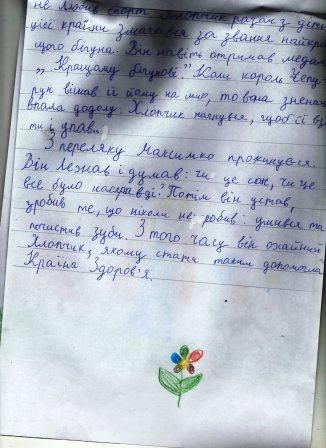 не любив спорт. Хлопчик разом з дітьми
цієї країни змагався за звання найкра-
щого бігуна. Він навіть отримав медаль
„Кращому бігунові". Коли король
вішав її йому на шию, то вона зненацька
впала додолу. Хлопчик нагнувся, щоб її вз
ти і упав..
З переляку Максимко прокинувся.
Він лежав і думав: чи це сон, чи це
все було насправді? Потім він устав,
зробив те, що ніколи не робив: умився та
почистив зуби. З того часу він охайний
хлопчик, якому стати таким допомогла
Країна Здоров'я.